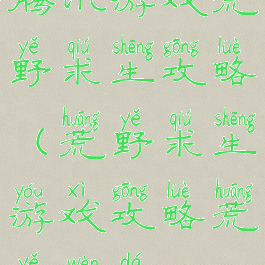 腾讯游戏荒
yě qiú shēng gōng lüè
野求生攻略
huāng yě qiú shēng
(荒野求生
yóu xì gōng lüè huāng
游戏攻略荒
yě wèn dá